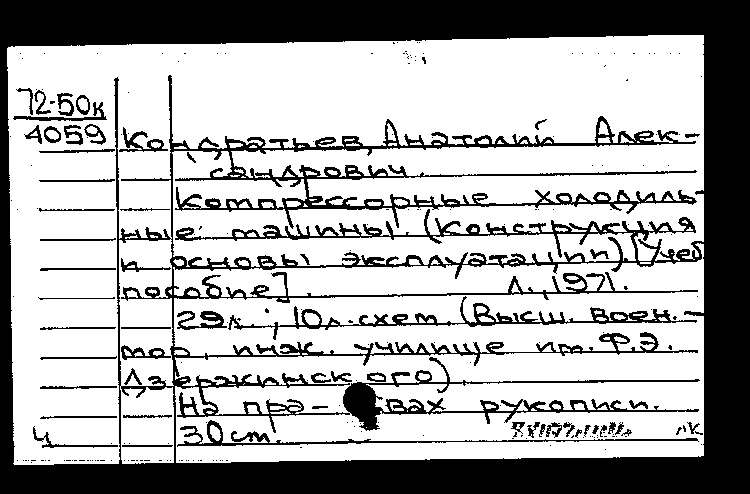 72-50к
4059
Кондратьев, Анатолий Алек-
сандрович.
Компрессорные холодиль-
ные машины. (Конструкция
и основы эксплуатации) [Учеб
пособие]. Л., 1971.
29л.; 10л. схем. (Высш. воен.-
мор. инж. училище им. Ф.Э.
Дзержинского).
На пра- вах рукописи.
30 см.
ч